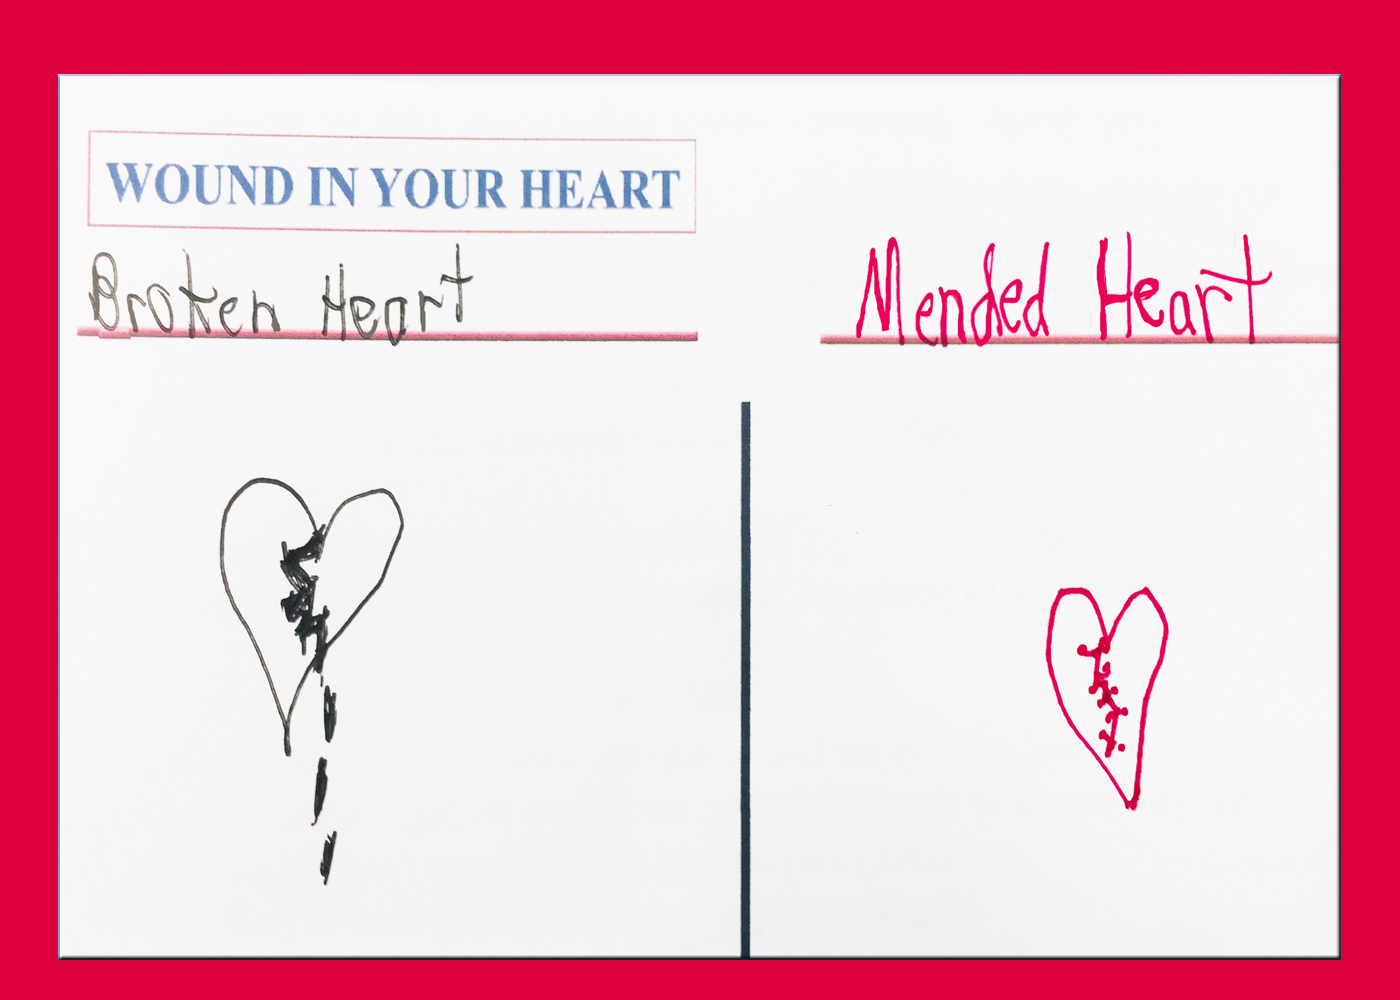 WOUND IN YOUR HEART
Broken Heart
Mended Heart